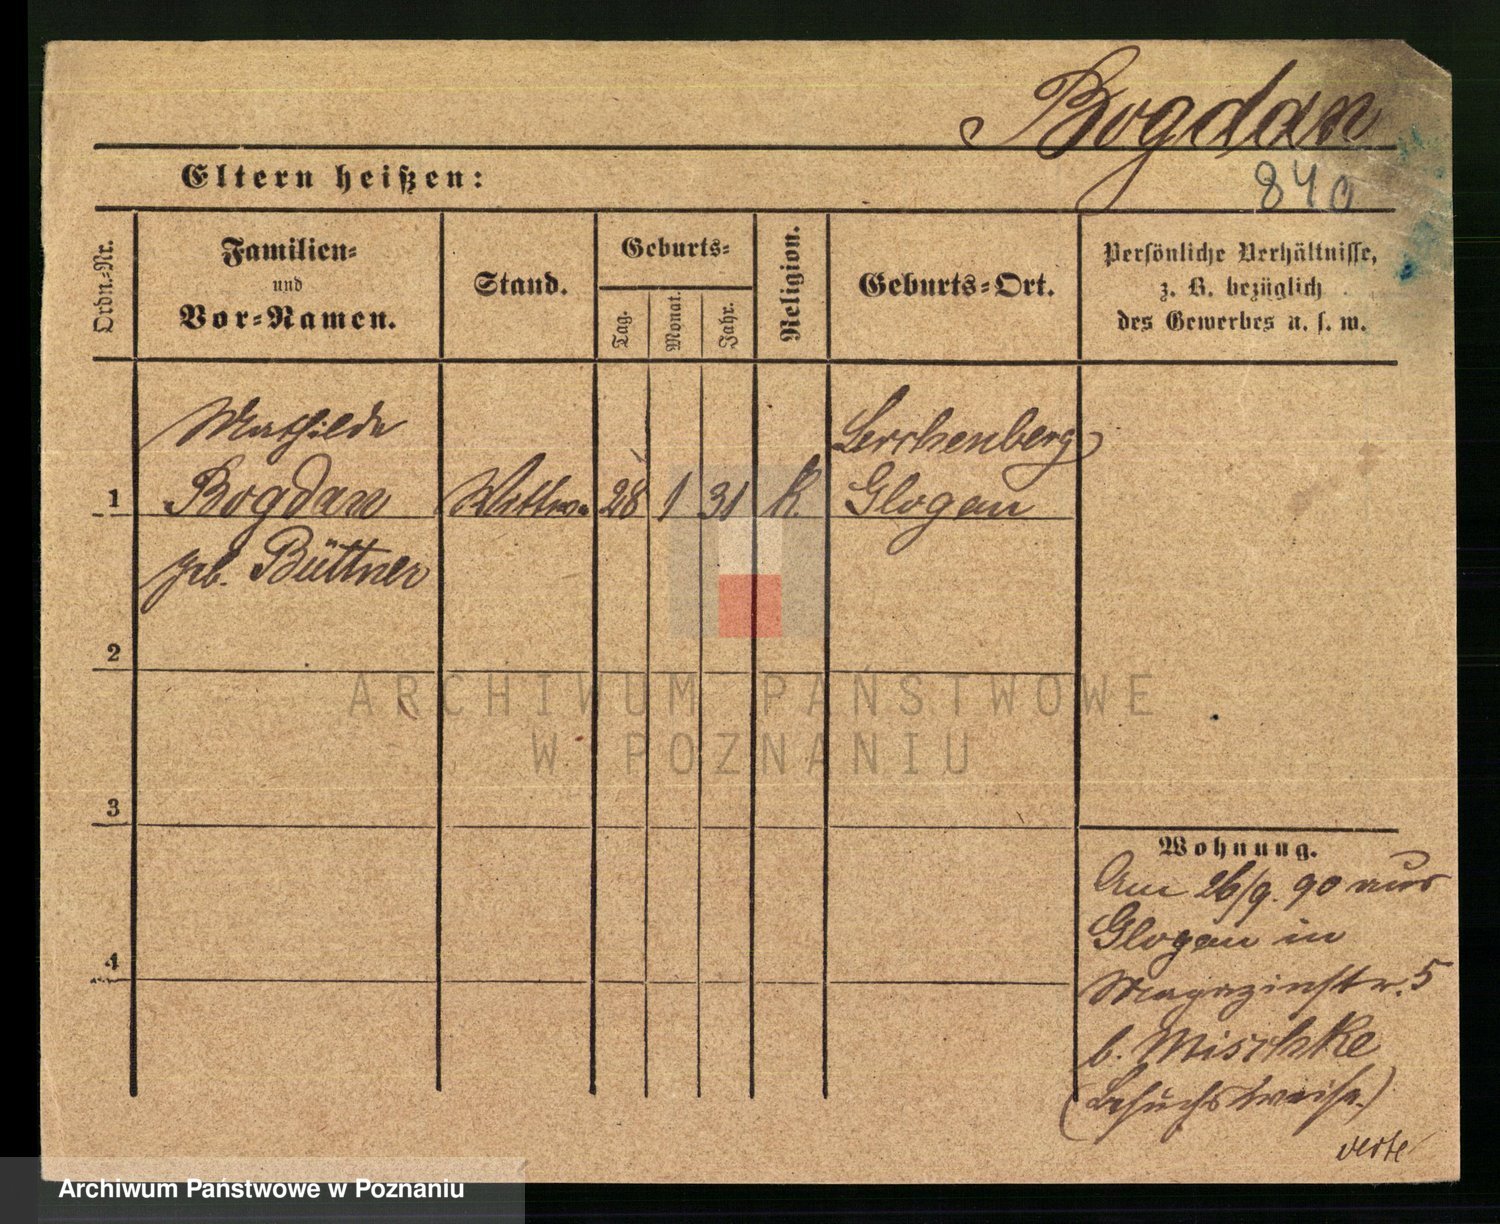 Bogdan
840
Eltern heißen:
Ordn.-Nr.
Familien-
und
Vor-Namen.
Stand.
Geburts-
Tag.
Monat.
Jahr.
Religion.
Geburts-Ort.
Persönliche Verhältnisse,
z. B. bezüglich
des Gewerbes u. s. w.
Mathilde
Lerchenberg
1 Bogdan Wittwe 28 1 31 k. Glogau
geb. Büttner
2
ARCHIWUM PAŃSTWOWE
W POZNANIU
3
4
Wohnung.
Am 26/9. 90 aus
Glogau in
Magazinstr. 5
b. Mischke
(besuchsweise)
verte
Archiwum Państwowe w Poznaniu